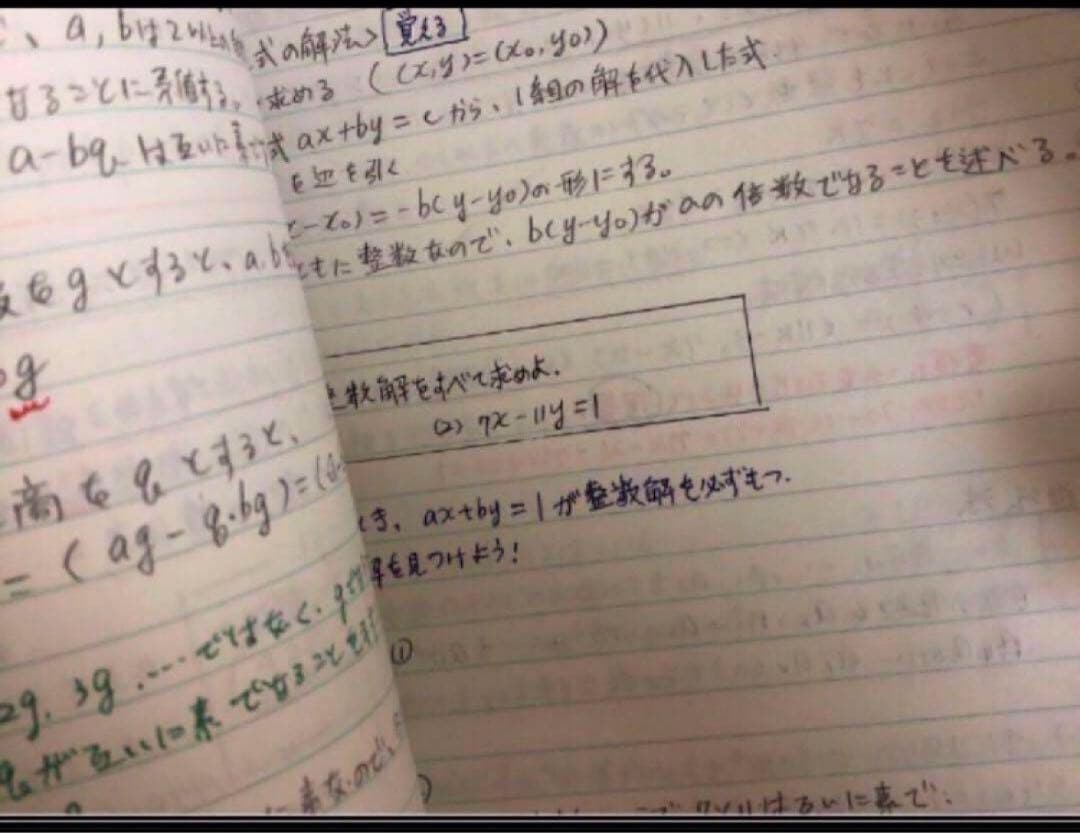 a, bは2以上の
なることに矛盾する。
a-bqは互いに素
をgとすると、a,b
g
商をqとすると、
=(ag-q・bg)=(a-
2g, 3g, ...ではなく、g
が互いに素であることを
式の解法> 覚える
求める ((x,y)=(x₀,y₀))
式 ax+by=cから、1組の解を代入した式
を辺を引く
-x₀)=-b(y-y₀)の形にする。
ともに整数なので、b(y-y₀)がaの倍数であることを述べる。
整数解をすべて求めよ。
(2) 7x-11y=1
とき、ax+by=1が整数解を必ずもつ。
を見つけよう!
①
に素なので、
は互いに素で、